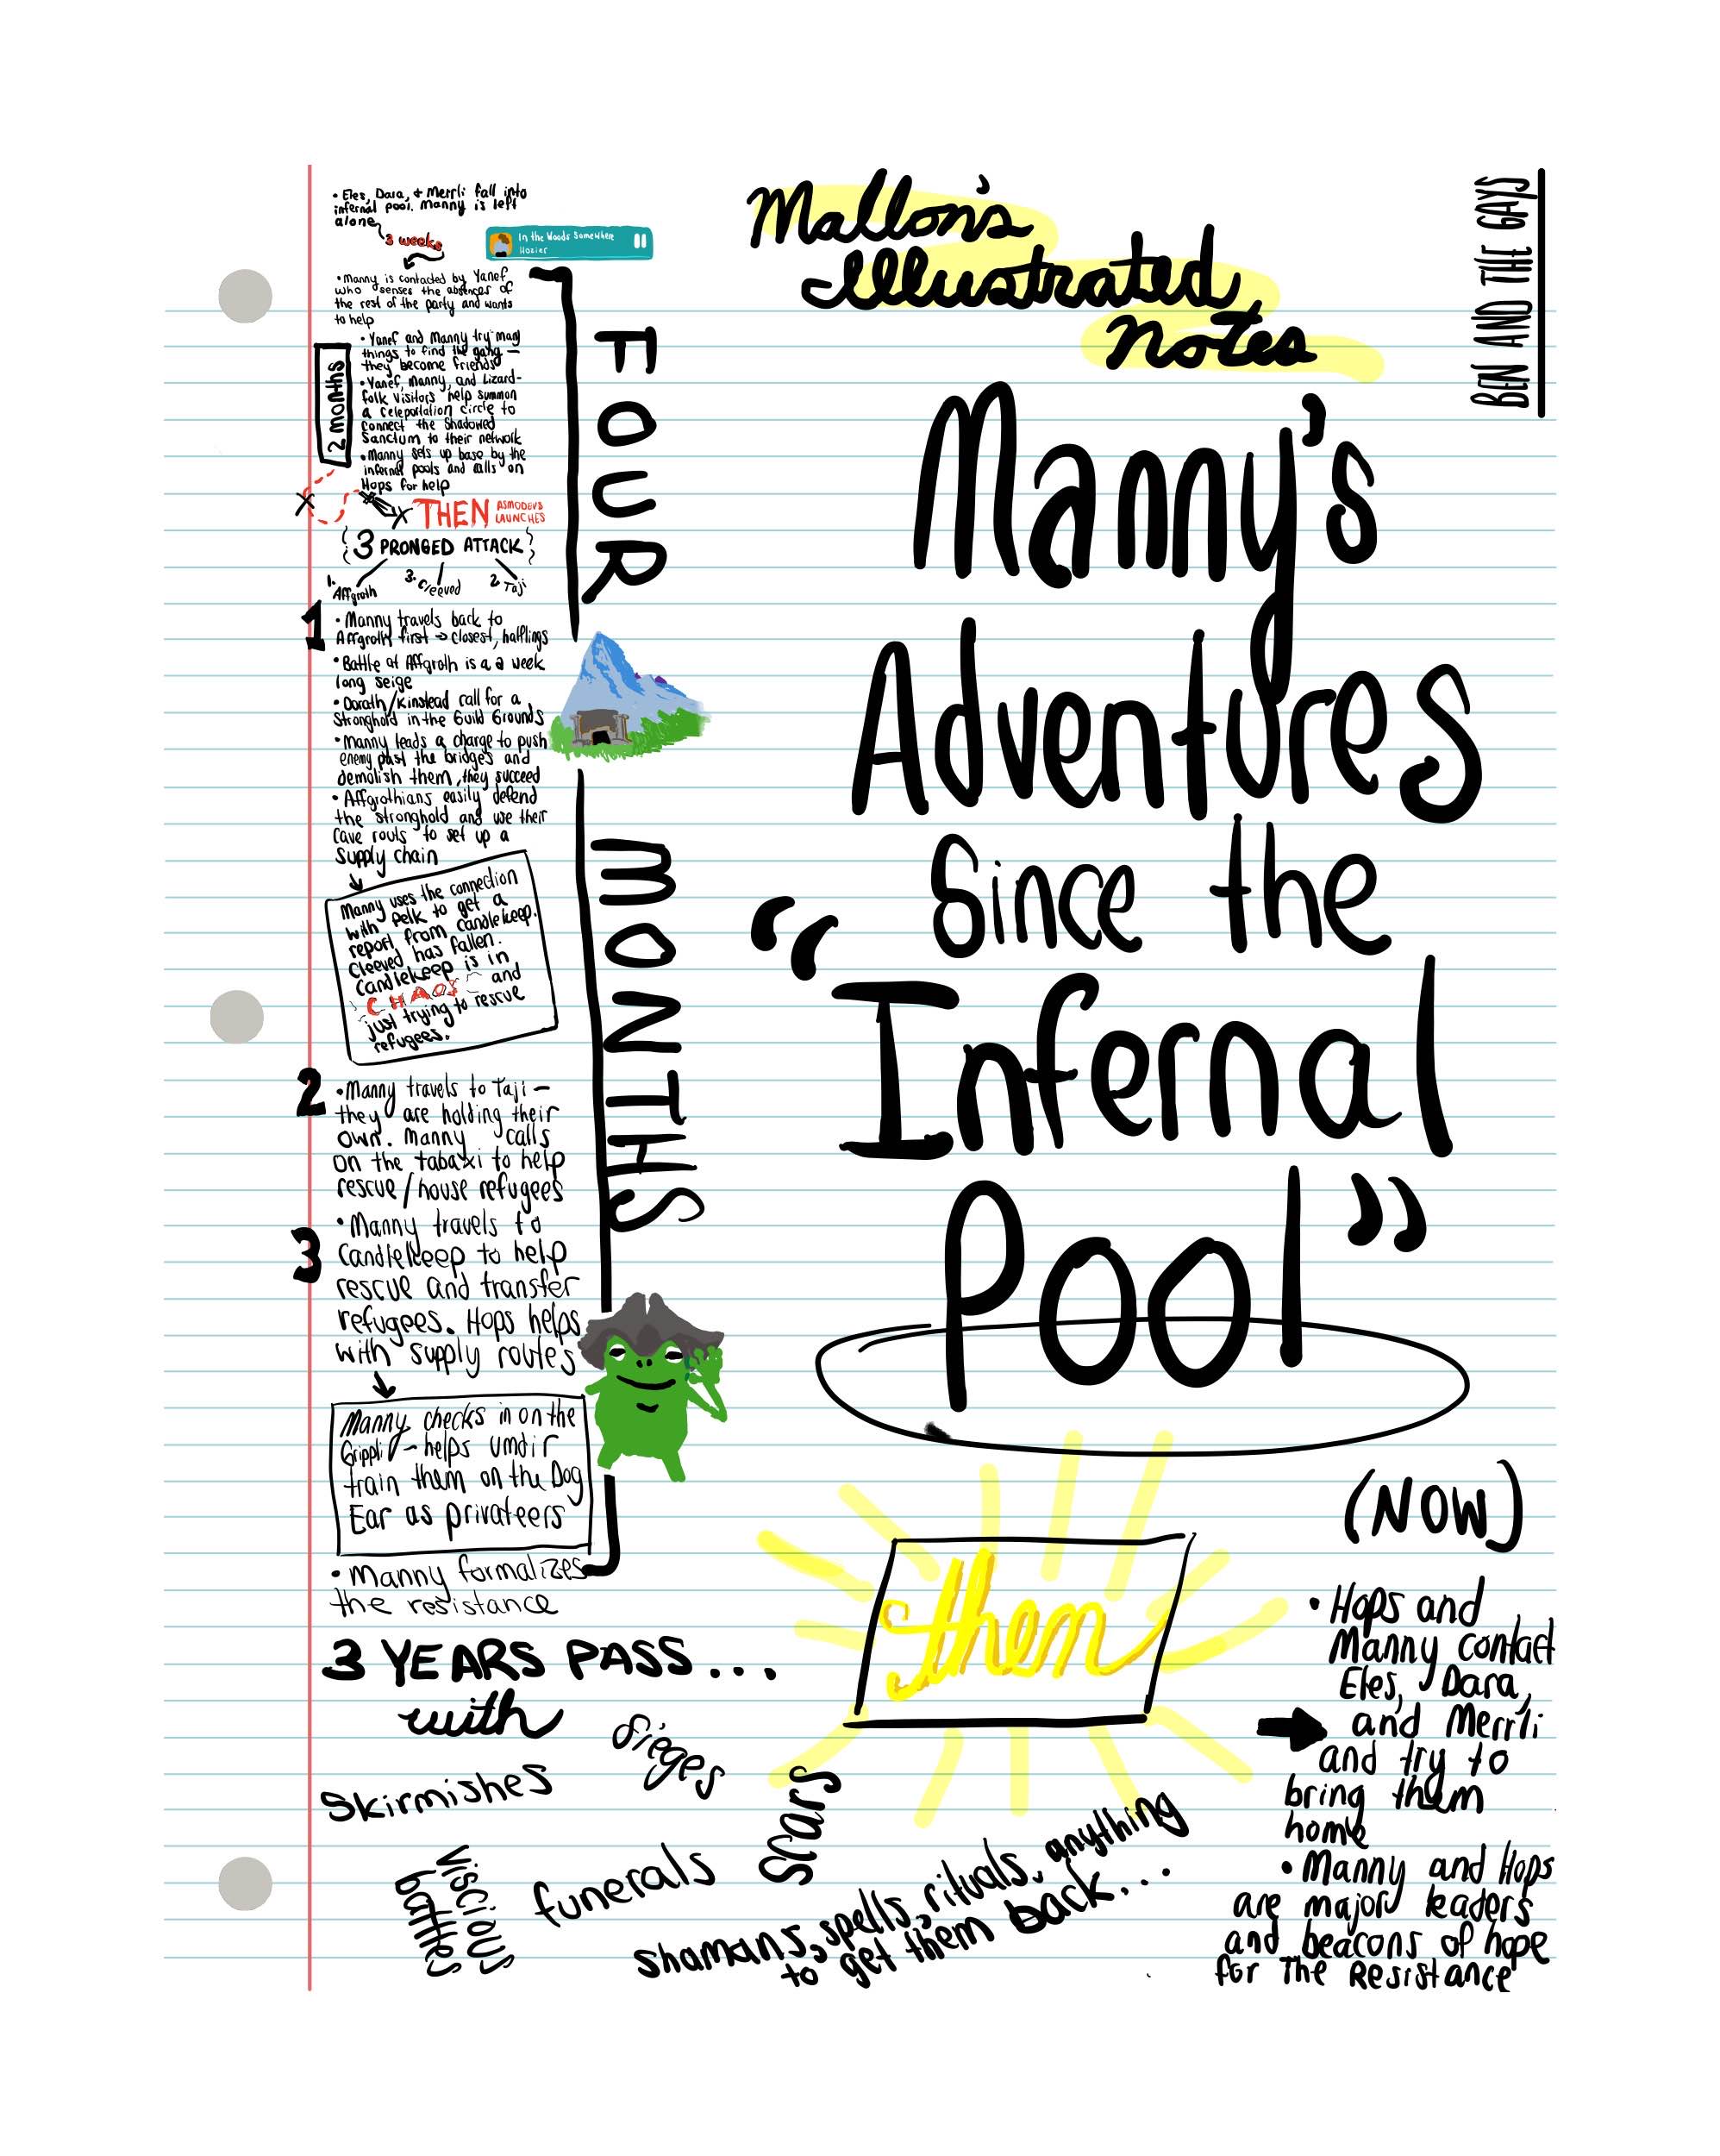 Mallon's
Illustrated
Notes
BEN AND THE GAYS
Manny's
Adventures
Since the
“Infernal
Pool”
• Eles, Dara, + Merrli fall into
infernal pool. Manny is left
alone
3 weeks
In the Woods Somewhere
Hozier
• Manny is contacted by Yanef
who senses the absences of
the rest of the party and wants
to help
2 months
• Yanef and Manny try many
things to find the gang —
they become friends
• Yanef, Manny, and Lizard-
folk visitors help summon
a celeportation circle to
connect the Shadowed
Sanctum to their network
• Manny sets up base by the
infernal pools and calls on
Hops for help
THEN ASMODEUS
LAUNCHES
3 PRONGED ATTACK
1. Affgroth
3. Cleeved
2. Taji
FOUR
MONTHS
1
• Manny travels back to
Affgroth first → closest, halflings
• Battle at Affgroth is a 2 week
long seige
• Dorath/Kinstead call for a
Stronghold in the Guild Grounds
• Manny leads a charge to push
enemy past the bridges and
demolish them, they succeed
• Affgrothians easily defend
the stronghold and use their
cave routs to set up a
supply chain
Manny uses the connection
with Pelk to get a
report from Candlekeep.
Cleeved has fallen.
Candlekeep is in
CHAOS and
just trying to rescue
refugees.
2
• Manny travels to Taji —
they are holding their
own. Manny calls
on the tabaxi to help
rescue/house refugees
3
• Manny travels to
Candlekeep to help
rescue and transfer
refugees. Hops helps
with supply routes
Manny checks in on the
Grippli — helps Umdir
train them on the Dog
Ear as privateers
• Manny formalizes
the resistance
3 YEARS PASS...
with
Skirmishes
Sieges
Viscious
battles
funerals
Scars
shamans, spells, rituals, anything
to get them back...
then
(NOW)
• Hops and
Manny contact
Eles, Dara,
and Merrli
and try to
bring them
home
• Manny and Hops
are major leaders
and beacons of hope
for The Resistance